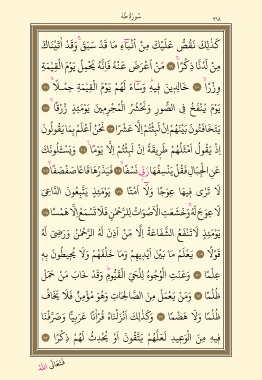 سُورَةُ طٰهٰ
٣١٨
كَذٰلِكَ نَقُصُّ عَلَيْكَ مِنْ اَنْبَٓاءِ مَا قَدْ سَبَقَۚ وَقَدْ اٰتَيْنَاكَ
مِنْ لَدُنَّا ذِكْرًاۚ مَنْ اَعْرَضَ عَنْهُ فَاِنَّهُ يَحْمِلُ يَوْمَ الْقِيٰمَةِ
وِزْرًاۙ خَالِدٖينَ فٖيهِؕ وَسَٓاءَ لَهُمْ يَوْمَ الْقِيٰمَةِ حِمْلًاۙ
يَوْمَ يُنْفَخُ فِي الصُّورِ وَنَحْشُرُ الْمُجْرِمٖينَ يَوْمَئِذٍ زُرْقًاۚ
يَتَخَافَتُونَ بَيْنَهُمْ اِنْ لَبِثْتُمْ اِلَّا عَشْرًا نَحْنُ اَعْلَمُ بِمَا يَقُولُونَ
اِذْ يَقُولُ اَمْثَلُهُمْ طَرٖيقَةً اِنْ لَبِثْتُمْ اِلَّا يَوْمًا۟ وَيَسْـَٔلُونَكَ
عَنِ الْجِبَالِ فَقُلْ يَنْسِفُهَا رَبّٖي نَسْفًاۙ فَيَذَرُهَا قَاعًا صَفْصَفًاۙ
لَا تَرٰى فٖيهَا عِوَجًا وَلَٓا اَمْتًاؕ يَوْمَئِذٍ يَتَّبِعُونَ الدَّاعِيَ
لَا عِوَجَ لَهُۚ وَخَشَعَتِ الْاَصْوَاتُ لِلرَّحْمٰنِ فَلَا تَسْمَعُ اِلَّا هَمْسًا
يَوْمَئِذٍ لَا تَنْفَعُ الشَّفَاعَةُ اِلَّا مَنْ اَذِنَ لَهُ الرَّحْمٰنُ وَرَضِيَ لَهُ
قَوْلًا يَعْلَمُ مَا بَيْنَ اَيْدٖيهِمْ وَمَا خَلْفَهُمْ وَلَا يُحٖيطُونَ بِهٖ
عِلْمًا وَعَنَتِ الْوُجُوهُ لِلْحَيِّ الْقَيُّومِؕ وَقَدْ خَابَ مَنْ حَمَلَ
ظُلْمًا وَمَنْ يَعْمَلْ مِنَ الصَّالِحَاتِ وَهُوَ مُؤْمِنٌ فَلَا يَخَافُ
ظُلْمًا وَلَا هَضْمًا وَكَذٰلِكَ اَنْزَلْنَاهُ قُرْاٰنًا عَرَبِيًّا وَصَرَّفْنَا
فٖيهِ مِنَ الْوَعٖيدِ لَعَلَّهُمْ يَتَّقُونَ اَوْ يُحْدِثُ لَهُمْ ذِكْرًا
فَتَعَالَى اللّٰهُ